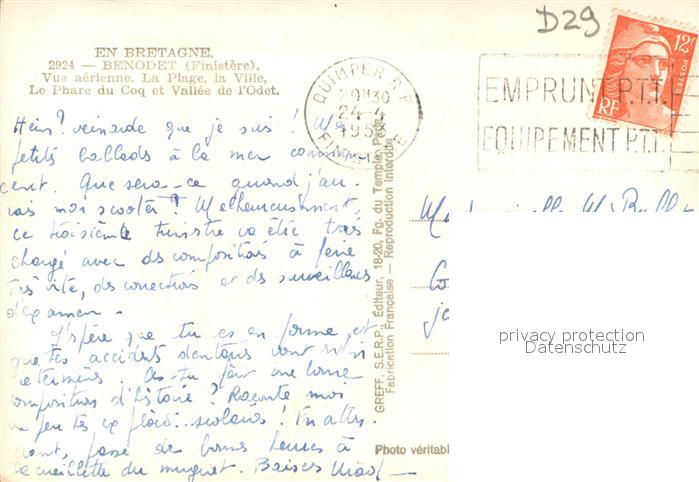 D29
EN BRETAGNE.
2924 — BENODET (Finistère).
Vue aérienne. La Plage, la Ville,
Le Phare du Coq et Vallée de l'Odet.
QUIMPER R.P.
20H30
24-4
FINISTERE
12F
POSTES
RF
EMPRUNT P.T.T.
EQUIPEMENT P.T.T.
Hein? veinarde que je suis! Mes
petits ballads à la mer commen
cent. Que sera-ce quand j'au
rai mon scooter? Malheureusement,
ce troisième trimestre va être très
chargé avec des compositions à faire
très vite, des corrections et des surveillances
d'examen -
J'espère que tu es en forme et
que tes accidents dentaires sont
terminés. As-tu fait une bonne
composition d'histoire? Raconte moi
un peu tes exploits scolaires! En atten
dant, passe de bonnes heures à
la cueillette du muguet. Baisers
GREFF, S.E.R.P., Éditeur, 18-20, Fg. du Temple, Paris
Fabrication Française — Reproduction interdite
Photo véritable
Mademoiselle M.
privacy protection
Datenschutz